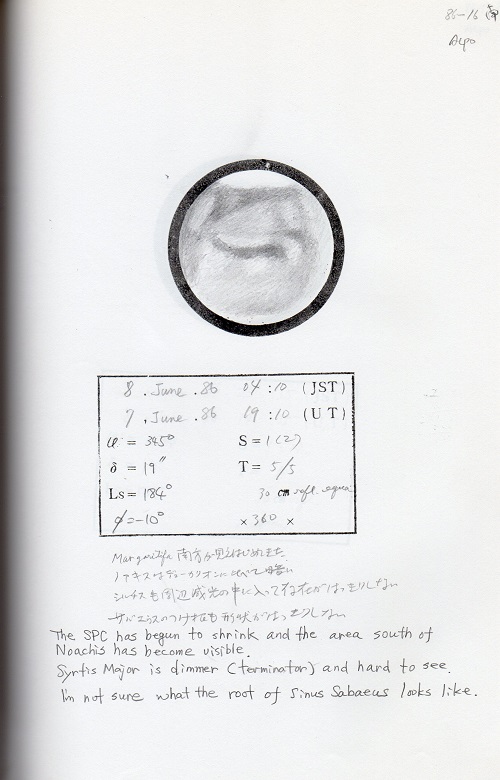 86-16
8. June. 86 04:10 (JST)
7, June. 86 19:10 (UT)
ω = 345° S = 1(2)
δ = 19" T = 5/5
Ls = 184° 30 cm refl. equa
φ = -10° ×360 ×
南方が見えはじめました
シルチスも周辺減光の中に入って存在がはっきりしない
サバエウスのつけ根も形状がはっきりしない
The SPC has begun to shrink and the area south of
Noachis has become visible.
Syrtis Major is dimmer (terminator) and hard to see.
I'm not sure what the root of Sinus Sabaeus looks like.